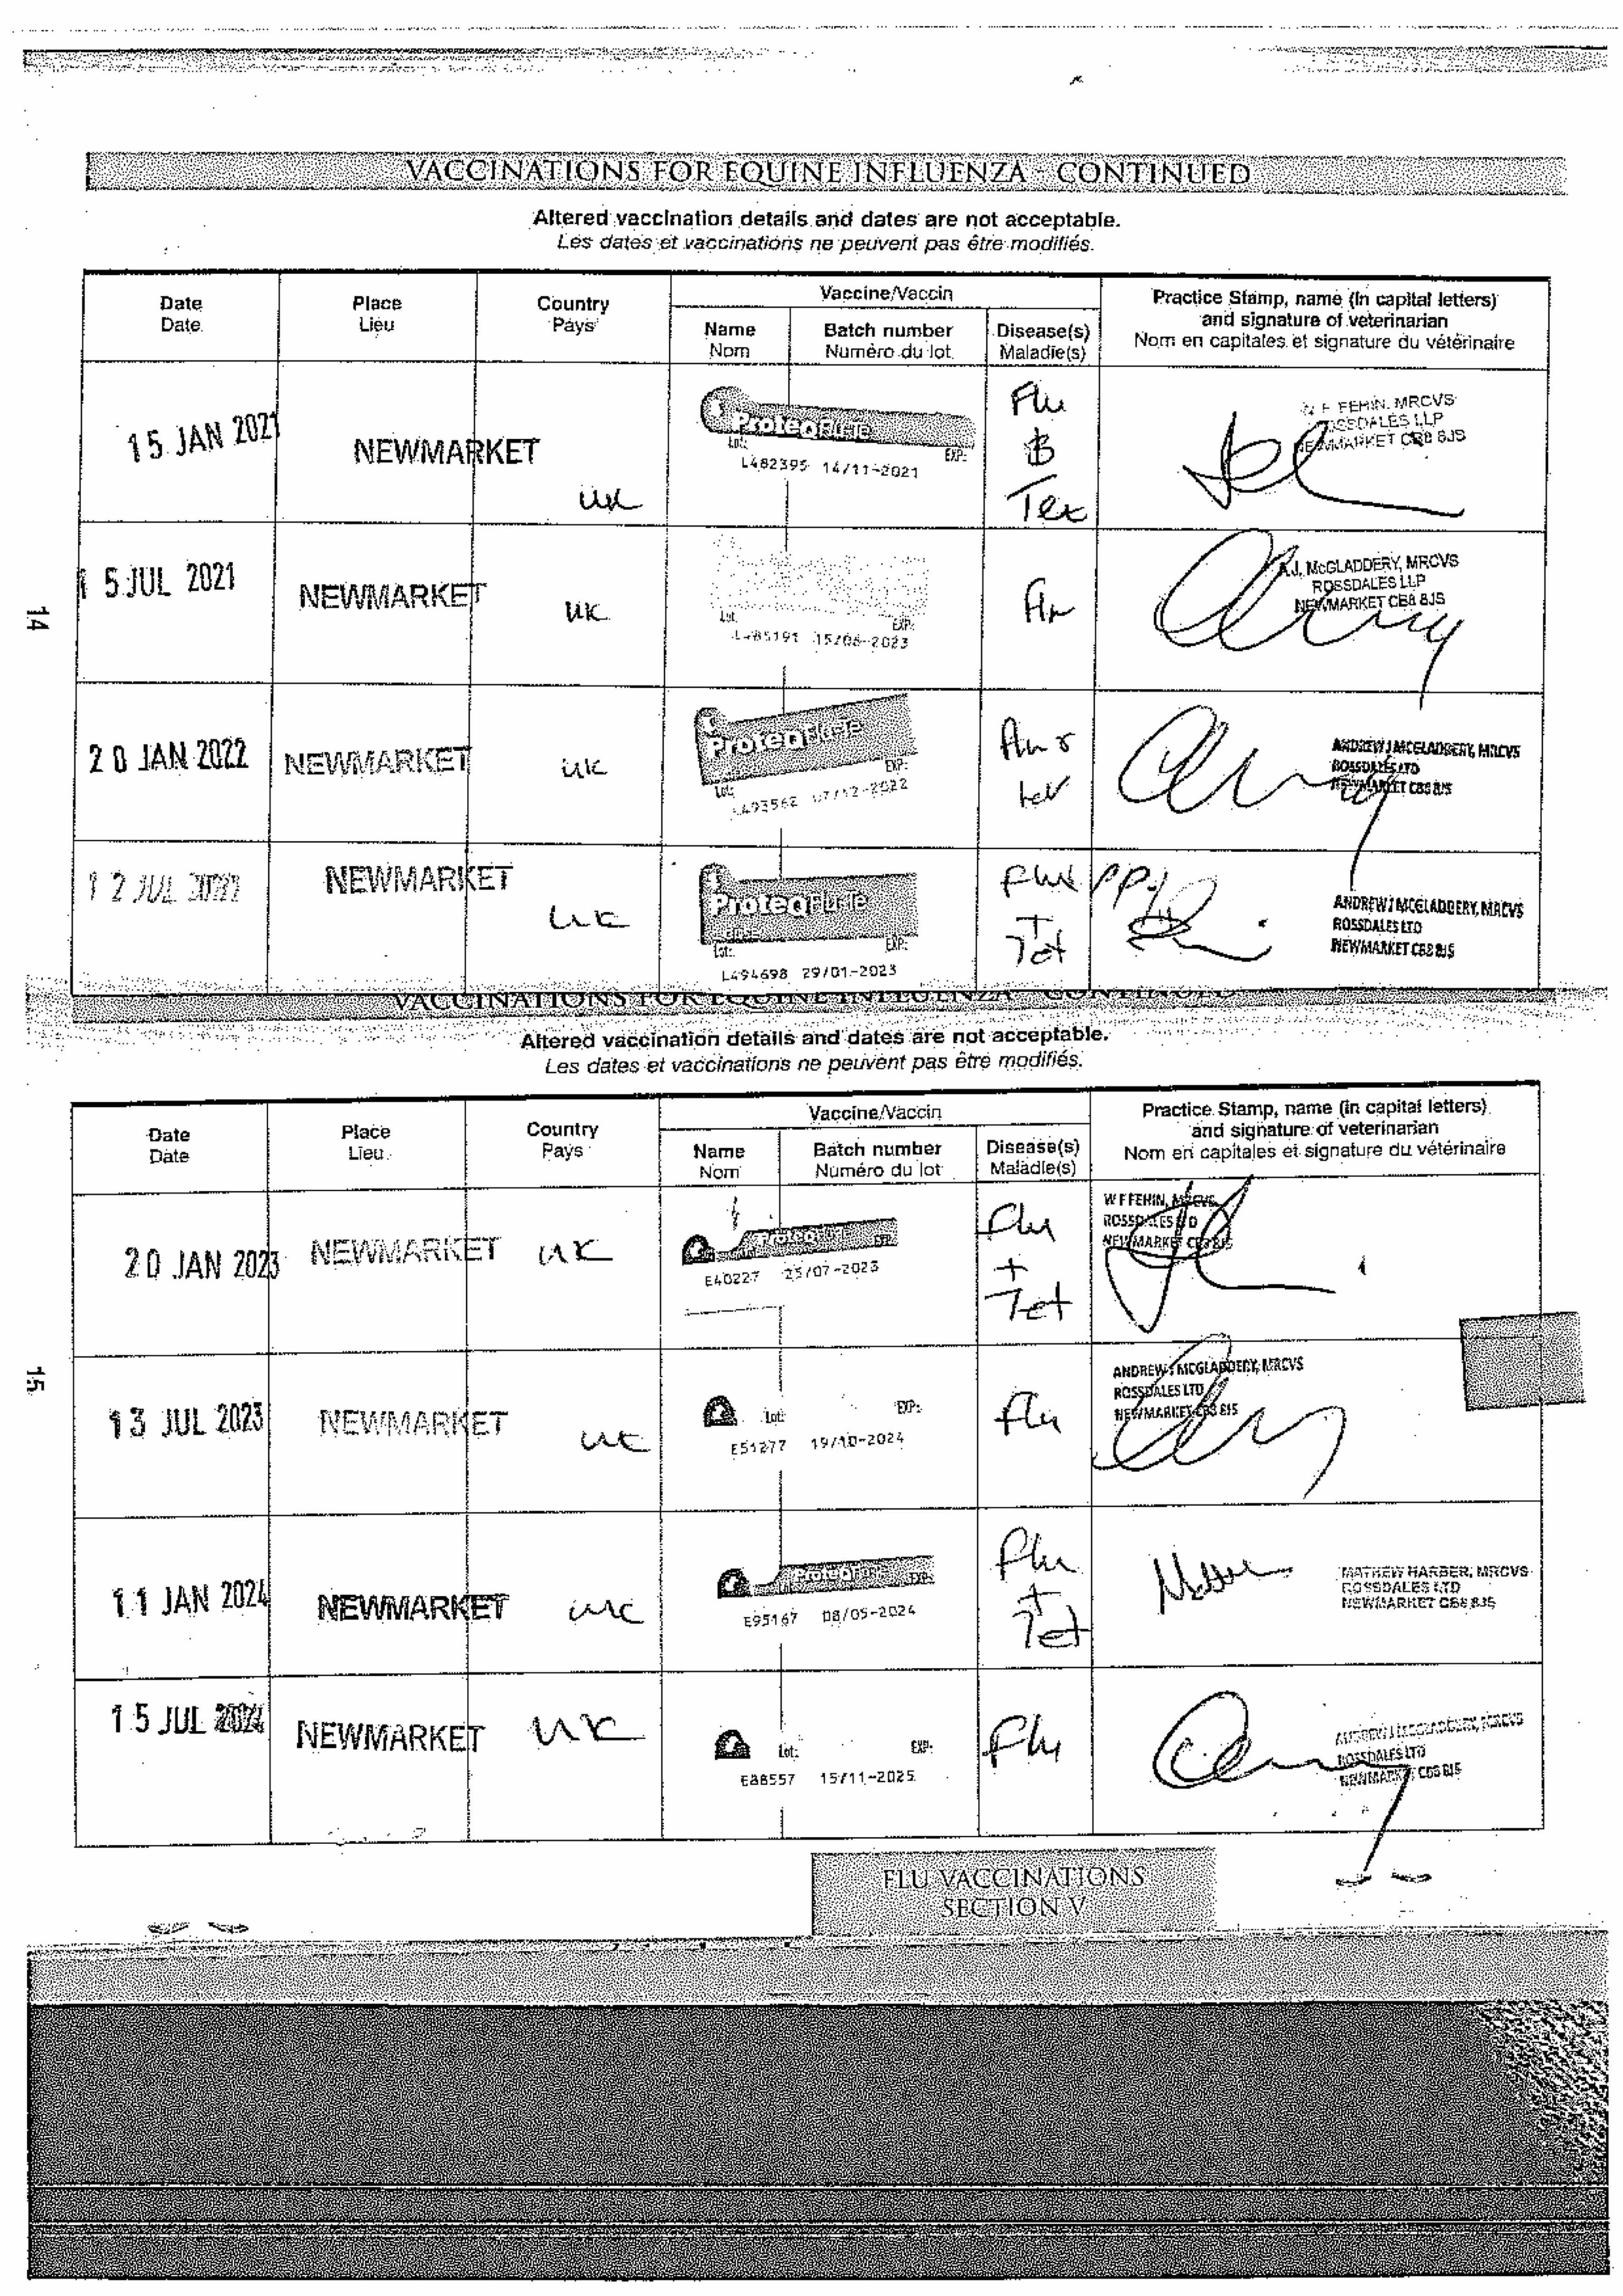 VACCINATIONS FOR EQUINE INFLUENZA - CONTINUED
Altered vaccination details and dates are not acceptable.
Les dates et vaccinations ne peuvent pas être modifiés.
Date
Date
Place
Lieu
Country
Pays
Vaccine/Vaccin
Name
Nom
Batch number
Numéro du lot
Disease(s)
Maladie(s)
Practice Stamp, name (In capital letters)
and signature of veterinarian
Nom en capitales et signature du vétérinaire
15 JAN 2021
NEWMARKET
UK
ProteqFlu-Te
Lot:
EXP:
L482395 14/11-2021
Flu
Tet
FEHIN, MRCVS
ROSSDALES LLP
NEWMARKET CB8 8JS
14
15 JUL 2021
NEWMARKET
UK
Lot:
EXP:
15/06-2023
Flu
A.J. McGLADDERY, MRCVS
ROSSDALES LLP
NEWMARKET CB8 8JS
20 JAN 2022
NEWMARKET
UK
ProteqFlu-Te
Lot:
EXP:
L493562 07/12-2022
Flu
tet
ANDREW J MCGLADDERY, MRCVS
ROSSDALES LTD
NEWMARKET CB8 8JS
12 JUL 2022
NEWMARKET
UK
ProteqFlu-Te
Lot:
EXP:
L494698 29/01-2023
Flu
+
Tet
pp
ANDREW J MCGLADDERY, MRCVS
ROSSDALES LTD
NEWMARKET CB8 8JS
VACCINATIONS FOR EQUINE INFLUENZA - CONTINUED
Altered vaccination details and dates are not acceptable.
Les dates et vaccinations ne peuvent pas être modifiés.
Date
Date
Place
Lieu
Country
Pays
Vaccine/Vaccin
Name
Nom
Batch number
Numéro du lot
Disease(s)
Maladie(s)
Practice Stamp, name (in capital letters)
and signature of veterinarian
Nom en capitales et signature du vétérinaire
20 JAN 2023
NEWMARKET
UK
ProteqFlu-Te
EXP:
E40227 25/07-2023
Flu
+
Tet
W F FEHIN, MRCVS
ROSSDALES LTD
NEWMARKET CB8 8JS
15
13 JUL 2023
NEWMARKET
UK
Lot:
EXP:
E51277 19/10-2024
Flu
ANDREW J MCGLADDERY, MRCVS
ROSSDALES LTD
NEWMARKET CB8 8JS
11 JAN 2024
NEWMARKET
UK
ProteqFlu-Te
EXP:
E95167 08/05-2024
Flu
+
Tet
MATHEW HARBER, MRCVS
ROSSDALES LTD
NEWMARKET CB8 8JS
15 JUL 2024
NEWMARKET
UK
Lot:
EXP:
E88557 15/11-2025
Flu
ANDREW J MCGLADDERY, MRCVS
ROSSDALES LTD
NEWMARKET CB8 8JS
FLU VACCINATIONS
SECTION V